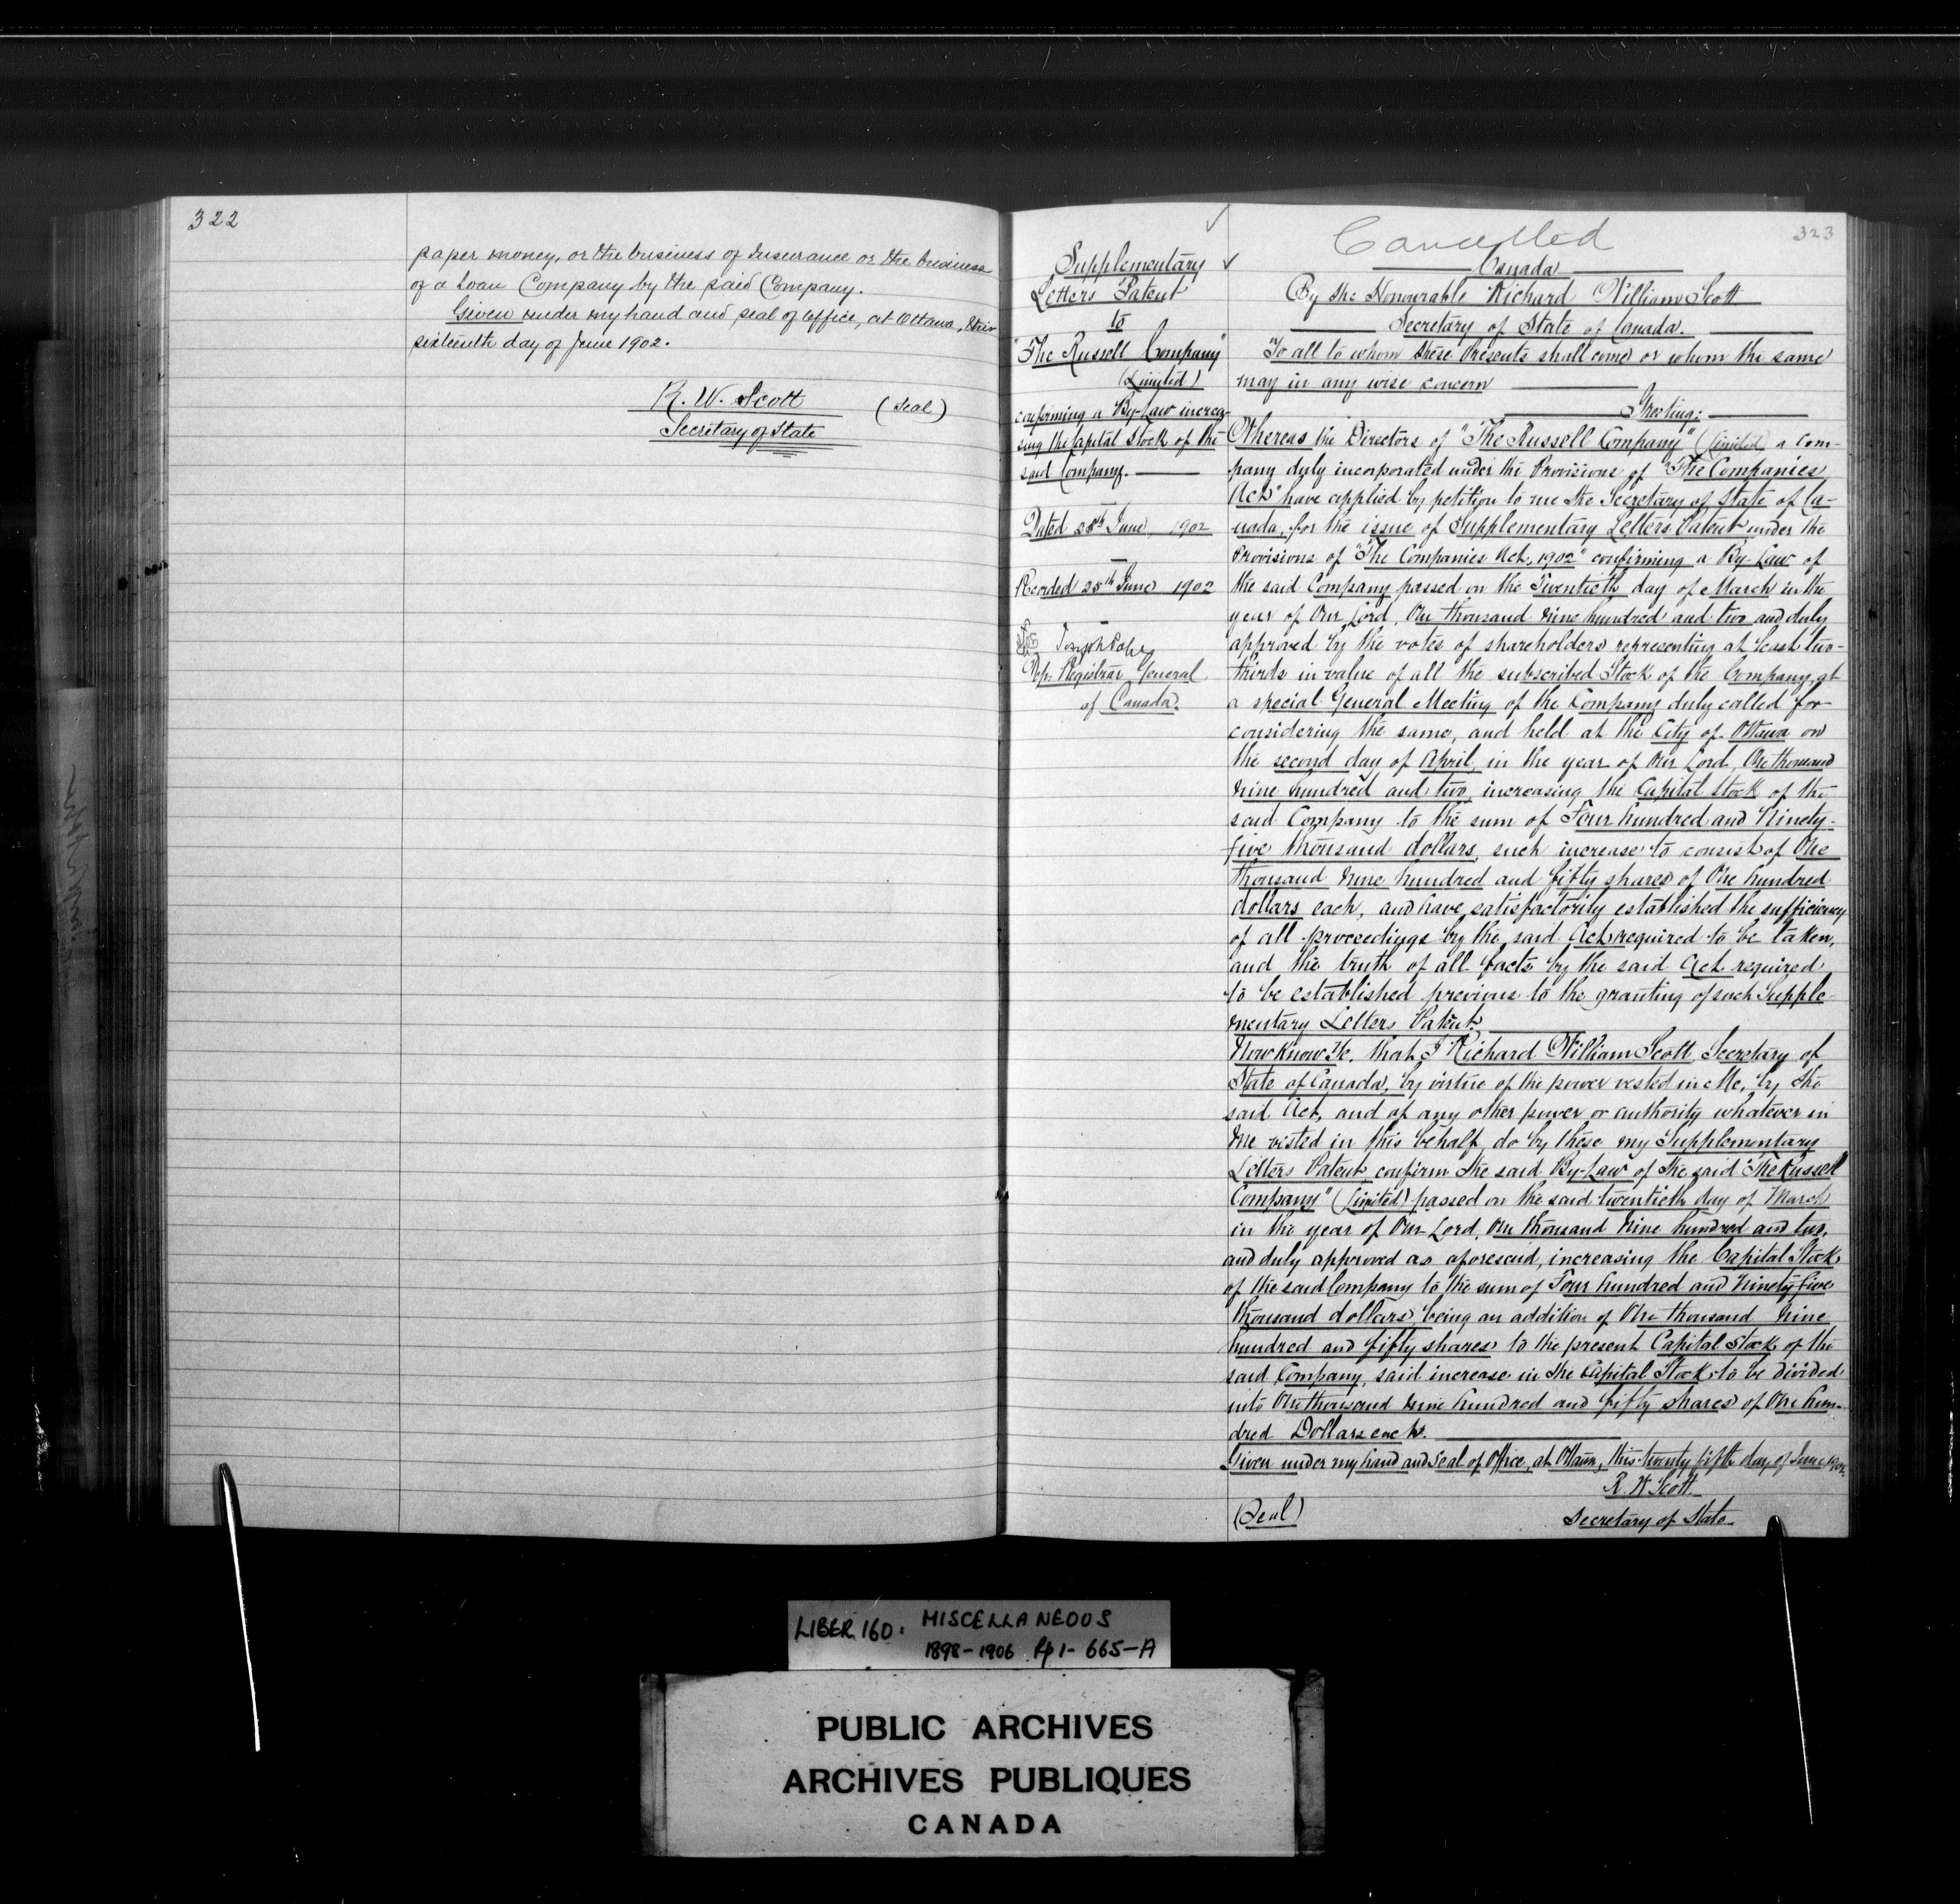 322
paper money, or the business of Insurance or the business
of a Loan Company by the said Company.
Given under my hand and seal of office, at Ottawa, this
sixteenth day of June 1902.
R. W. Scott (Seal)
Secretary of State
323
Cancelled
Supplementary
Letters Patent
to
"The Russell Company"
(Limited)
confirming a By-Law increa-
sing the Capital Stock of the
said Company.
Dated 25th June, 1902
Recorded 28th June 1902
Joseph Pope
Dep. Registrar General
of Canada.
Canada
By the Honourable Richard William Scott
Secretary of State of Canada.
To all to whom these Presents shall come or whom the same
may in any wise concern
Greeting:
Whereas the Directors of "The Russell Company" (Limited) a com-
pany duly incorporated under the Provisions of "The Companies
Act" have applied by petition to me the Secretary of State of Ca-
nada, for the issue of Supplementary Letters Patent under the
Provisions of "The Companies Act, 1902" confirming a By-Law of
the said Company passed on the Twentieth day of March in the
year of Our Lord, One thousand nine hundred and two and duly
approved by the votes of shareholders representing at least two-
thirds in value of all the subscribed Stock of the Company, at
a special General Meeting of the Company duly called for
considering the same, and held at the City of Ottawa on
the second day of April, in the year of Our Lord, One thousand
nine hundred and two, increasing the Capital stock of the
said Company to the sum of Four hundred and Ninety-
five thousand dollars, such increase to consist of One
thousand nine hundred and fifty shares of One hundred
dollars each, and have satisfactorily established the sufficiency
of all proceedings by the said Act required to be taken,
and the truth of all facts by the said Act required
to be established previous to the granting of such Supple-
mentary Letters Patent
Now Know Ye, that I Richard William Scott, Secretary of
State of Canada, by virtue of the power vested in Me, by the
said Act, and of any other power or authority whatever in
Me vested in this behalf, do by these my Supplementary
Letters Patent, confirm the said By-Law of the said "The Russell
Company" (Limited) passed on the said twentieth day of March
in the year of Our Lord, One thousand Nine hundred and two,
and duly approved as aforesaid, increasing the Capital Stock
of the said Company to the sum of Four hundred and ninety five
thousand dollars, being an addition of One thousand Nine
hundred and fifty shares to the present Capital Stock of the
said Company, said increase in the Capital Stock to be divided
into One thousand nine hundred and fifty shares of One hun-
dred Dollars each.
Given under my hand and Seal of Office, at Ottawa, this twenty fifth day of June 1902.
R. W. Scott
(Seal) Secretary of State
LIBER 160: MISCELLANEOUS
1898-1906 Pp 1-665-A
PUBLIC ARCHIVES
ARCHIVES PUBLIQUES
CANADA